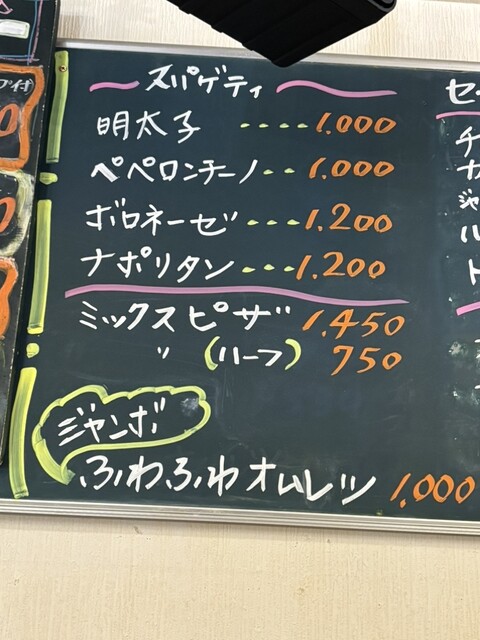 スパゲティ
明太子 ････1.000
ペペロンチーノ･･･1.000
ボロネーゼ･･･1.200
ナポリタン･･･1.200
ミックスピザ 1.450
〃 (ハーフ) 750
ジャンボ
ふわふわオムレツ 1,000